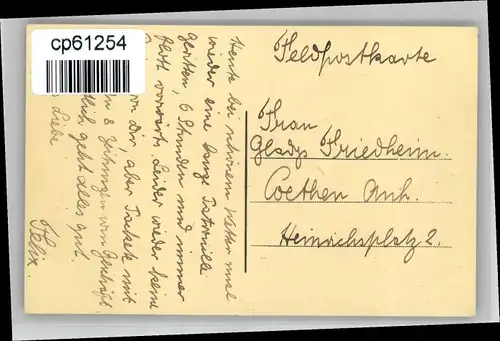 cp61254
Feldpostkarte
Frau
Gladys Friedheim.
Coethen Anh.
Heinrichsplatz 2.
Heute bei schönem Wetter mal
wieder eine lange Patrouille
geritten, 6 Stunden und immer
flott vorwärts. Leider wieder keine
von Dir, aber Packete mit
& Zeitungen vom Geschäft.
geht alles gut.
Liebe
Felix.